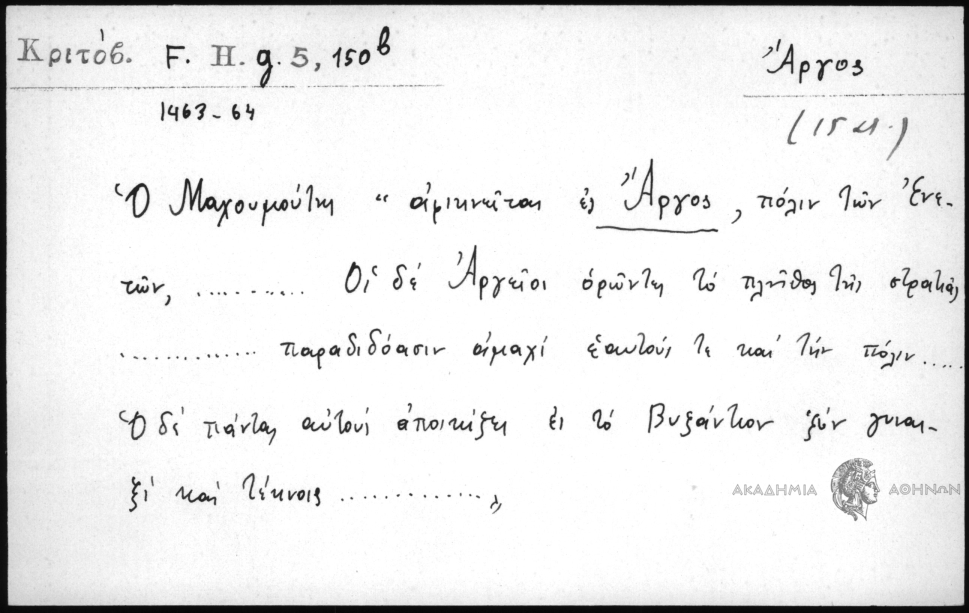 Κριτόβ. F. H. g. 5, 150β Ἄργος
1463-64 (15 αι.)
Ὁ Μαχουμούτης “ ἀφικνεῖται ἐς Ἄργος, πόλιν τῶν Ἐνε-
τῶν, .......... Οἱ δέ Ἀργεῖοι ὁρῶντες τό πλῆθος τῆς στρατιᾶς
............. παραδιδόασιν ἀμαχί ἑαυτούς τε καί τήν πόλιν .....
Ὁ δέ πάντας αὐτούς ἀποικίζει ἐς τό Βυζάντιον ξύν γυναι-
ξί καί τέκνοις .............. „
ΑΚΑΔΗΜΙΑ ΑΘΗΝΩΝ